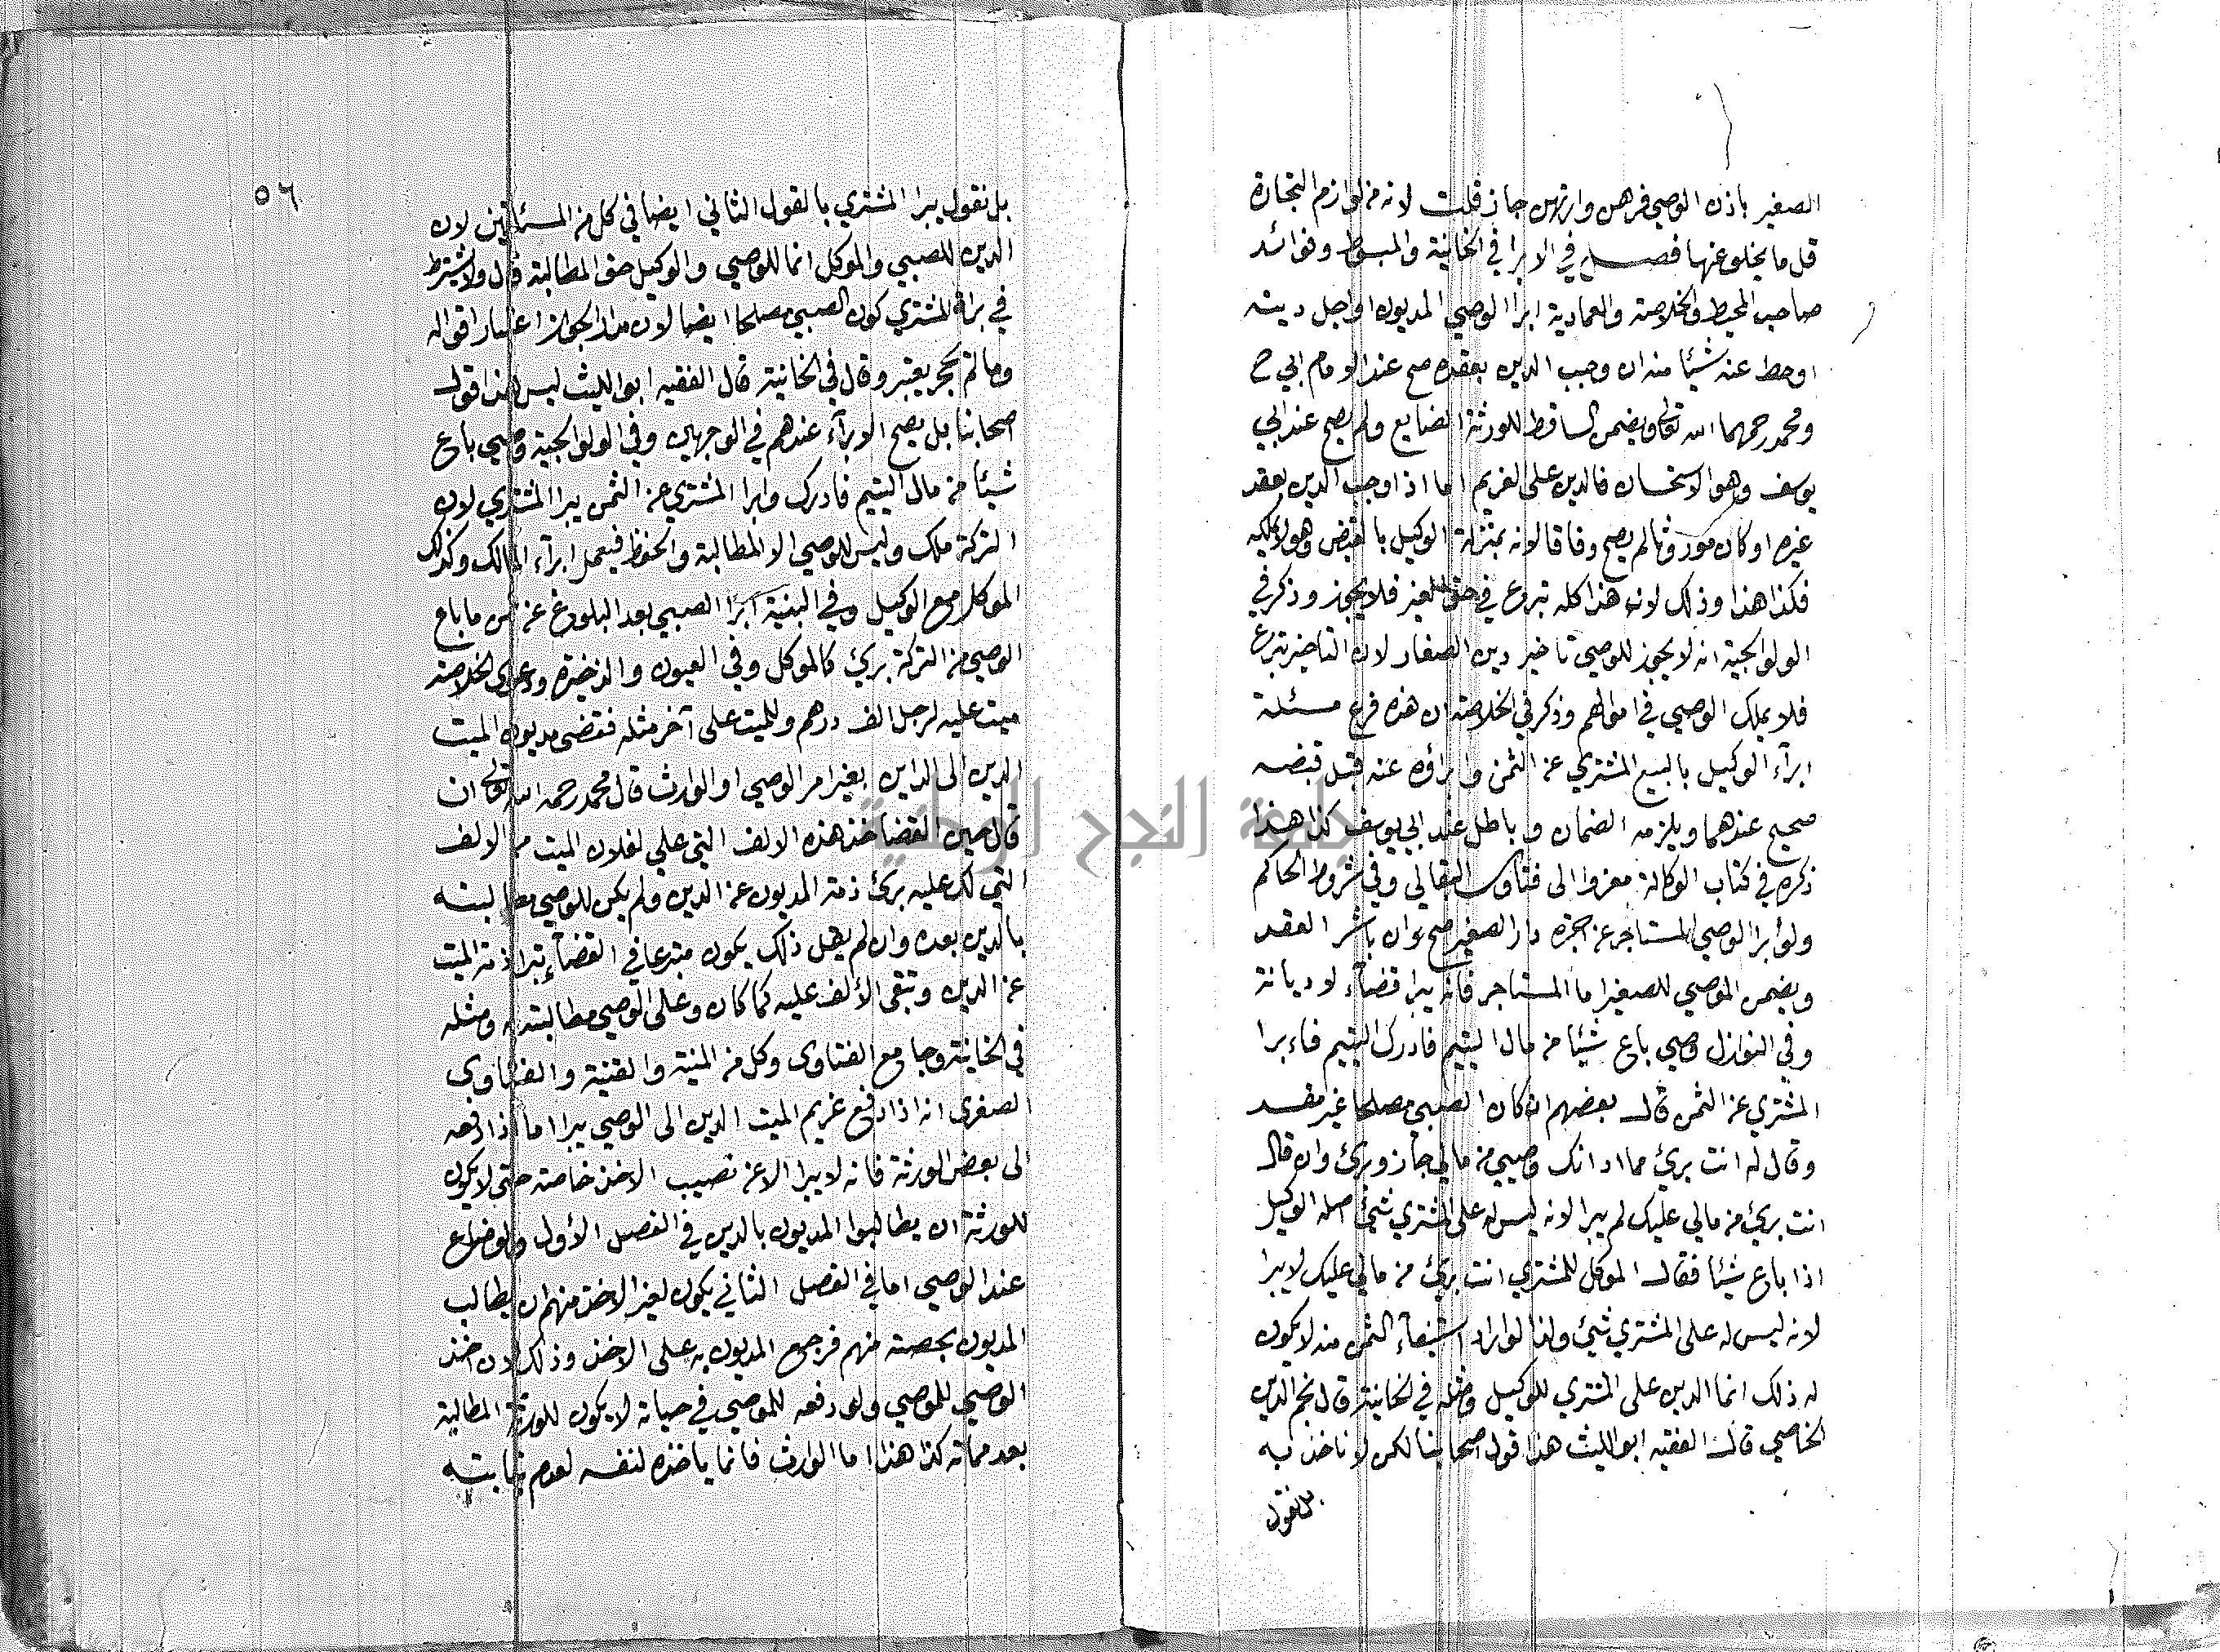 الصغير باذن الوصي فرهن وارتهن جاز قلت لانه من لوازم التجارة
قل ما يخلو عنها فصل في الابرا في الخانية والمبسوط وفوائد
صاحب المحيط والخلاصة والعمادية ابرا الوصي المديون او اجل دينه
اوحط عنه شيئا منه ان وجب الدين بعقده صح عند الامام ابي ح
ومحمد رحمهما الله تعالى ويضمن الساقط للورثة الضايع ولم يصح عند ابي
يوسف وهو الاستحسان فالدين على الغريم اما اذا وجب الدين بعقد
غيره او كان موروثا لم يصح وفاقا لانه بمنزلة الوكيل بالقبض وهو لا يملكه
فكذا هذا وذلك لان هذا كله تبرع في حق الغير فلا يجوز وذكر في
الولوالجية انه لا يجوز للوصي تاخير دين الصغار لان التاخير تبرع
فلا يملك الوصي في اموالهم وذكر في الخلاصة ان هذه فرع مسئلة
ابرآء الوكيل بالبيع المشتري عن الثمن وابراؤه عنه قبل قبضه
صحيح عندهما ويلزمه الضمان وباطل عند ابي يوسف كذا هذا
ذكره في كتاب الوكالة معزوا الى فتاوى البقالي وفي شروط الحاكم
ولو ابرا الوصي المستاجر عن اجرة دار الصغير صح وان باشر العقد
ويضمن الوصي للصغير اما المستاجر فانه يبرا قضآء لا ديانة
وفي النوازل وصي باع شيئا من مال اليتيم فادرك اليتيم فاءبرا
المشتري عن الثمن قال بعضهم ان كان الصبي مصلحا غير مفسد
وقال له انت برئ مما ادانك وصيي من مالي جاز وبرئ وان قال
انت برئ من مالي عليك لم يبرا لانه ليس له على المشتري شئ اصله الوكيل
اذا باع شيئا فقال الموكل للمشتري انت برئ من مالي عليك لا يبرا
لانه ليس له على المشتري شئ ولذا لو اراد استيفاء الثمن منه لا يكون
له ذلك انما الدين على المشتري للوكيل ومثله في الخانية قال نجم الدين
الخاصي قال الفقيه ابو الليث هذا قول اصحابنا لكن لا ناخذ به
بل نقول
٥٦
بل نقول يبرا المشتري بالقول الثاني ايضا في كل من المسئلتين لان
الدين للصبي والموكل انما للوصي والوكيل حق المطالبة قال ولا يشترط
في براة المشتري كون الصبي مصلحا ايضا لان مدار الجواز اعتبار اقواله
وما لم يحجر يعتبر وقال في الخانية قال الفقيه ابو الليث ليس هذا قول
اصحابنا بل يصح الابرآء عندهم في الوجهين وفي الولوالجية وصي باع
شيئا من مال اليتيم فادرك وابرا المشتري عن الثمن يبرا المشتري لان
التركة ملك وليس للوصي الا المطالبة والحفظ فيعمل ابرآء المالك وكذلك
الموكل مع الوكيل وفي البنية ابرا الصبي بعد البلوغ عن ثمن ما باع
الوصي من التركة برئ كالموكل وفي العيون والذخيرة ودعوى الخلاصة
ميت عليه لرجل الف درهم وللميت على آخر مثله فقضى مديون الميت
الدين الى الداين بغير امر الوصي او الوارث قال محمد رحمه الله تعالى ان
قال حين القضا خذ هذه الالف التي علي لفلان الميت من الالف
التي لك عليه برئ ذمة المديون عن الدين ولم يكن للوصي مطالبته
بالدين بعده وان لم يقل ذلك يكون متبرعا في القضآء تبرا ذمة الميت
عن الدين وتبقى الألف عليه كما كان وعلى الوصي مطالبته به ومثله
في الخانية وجامع الفتاوى وكل من المنية والقنية والفتاوى
الصغرى انه اذا دفع غريم الميت الدين الى الوصي يبرا اما اذا دفعه
الى بعض الورثة فانه لا يبرا الا عن نصيب الاخذ خاصة حتى لا يكون
للورثة ان يطالبوا المديون بالدين في الفصل الأول ولو ضاع
عند الوصي اما في الفصل الثاني يكون لغير الاخذ منهم ان يطالب
المديون بحصته منهم فرجع المديون به على الاخذ وذلك لان اخذ
الوصي للموصي ولو دفعه للموصي في حياته لا يكون للورثة المطالبة
بعد مماته كذا هذا اما الوارث فانما ياخذه لنفسه لعدم نيابته
جامعة النجاح الوطنية